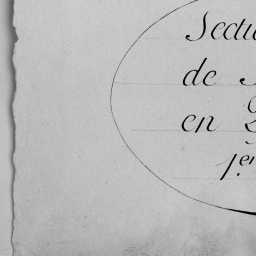 Secti
de
en
1er